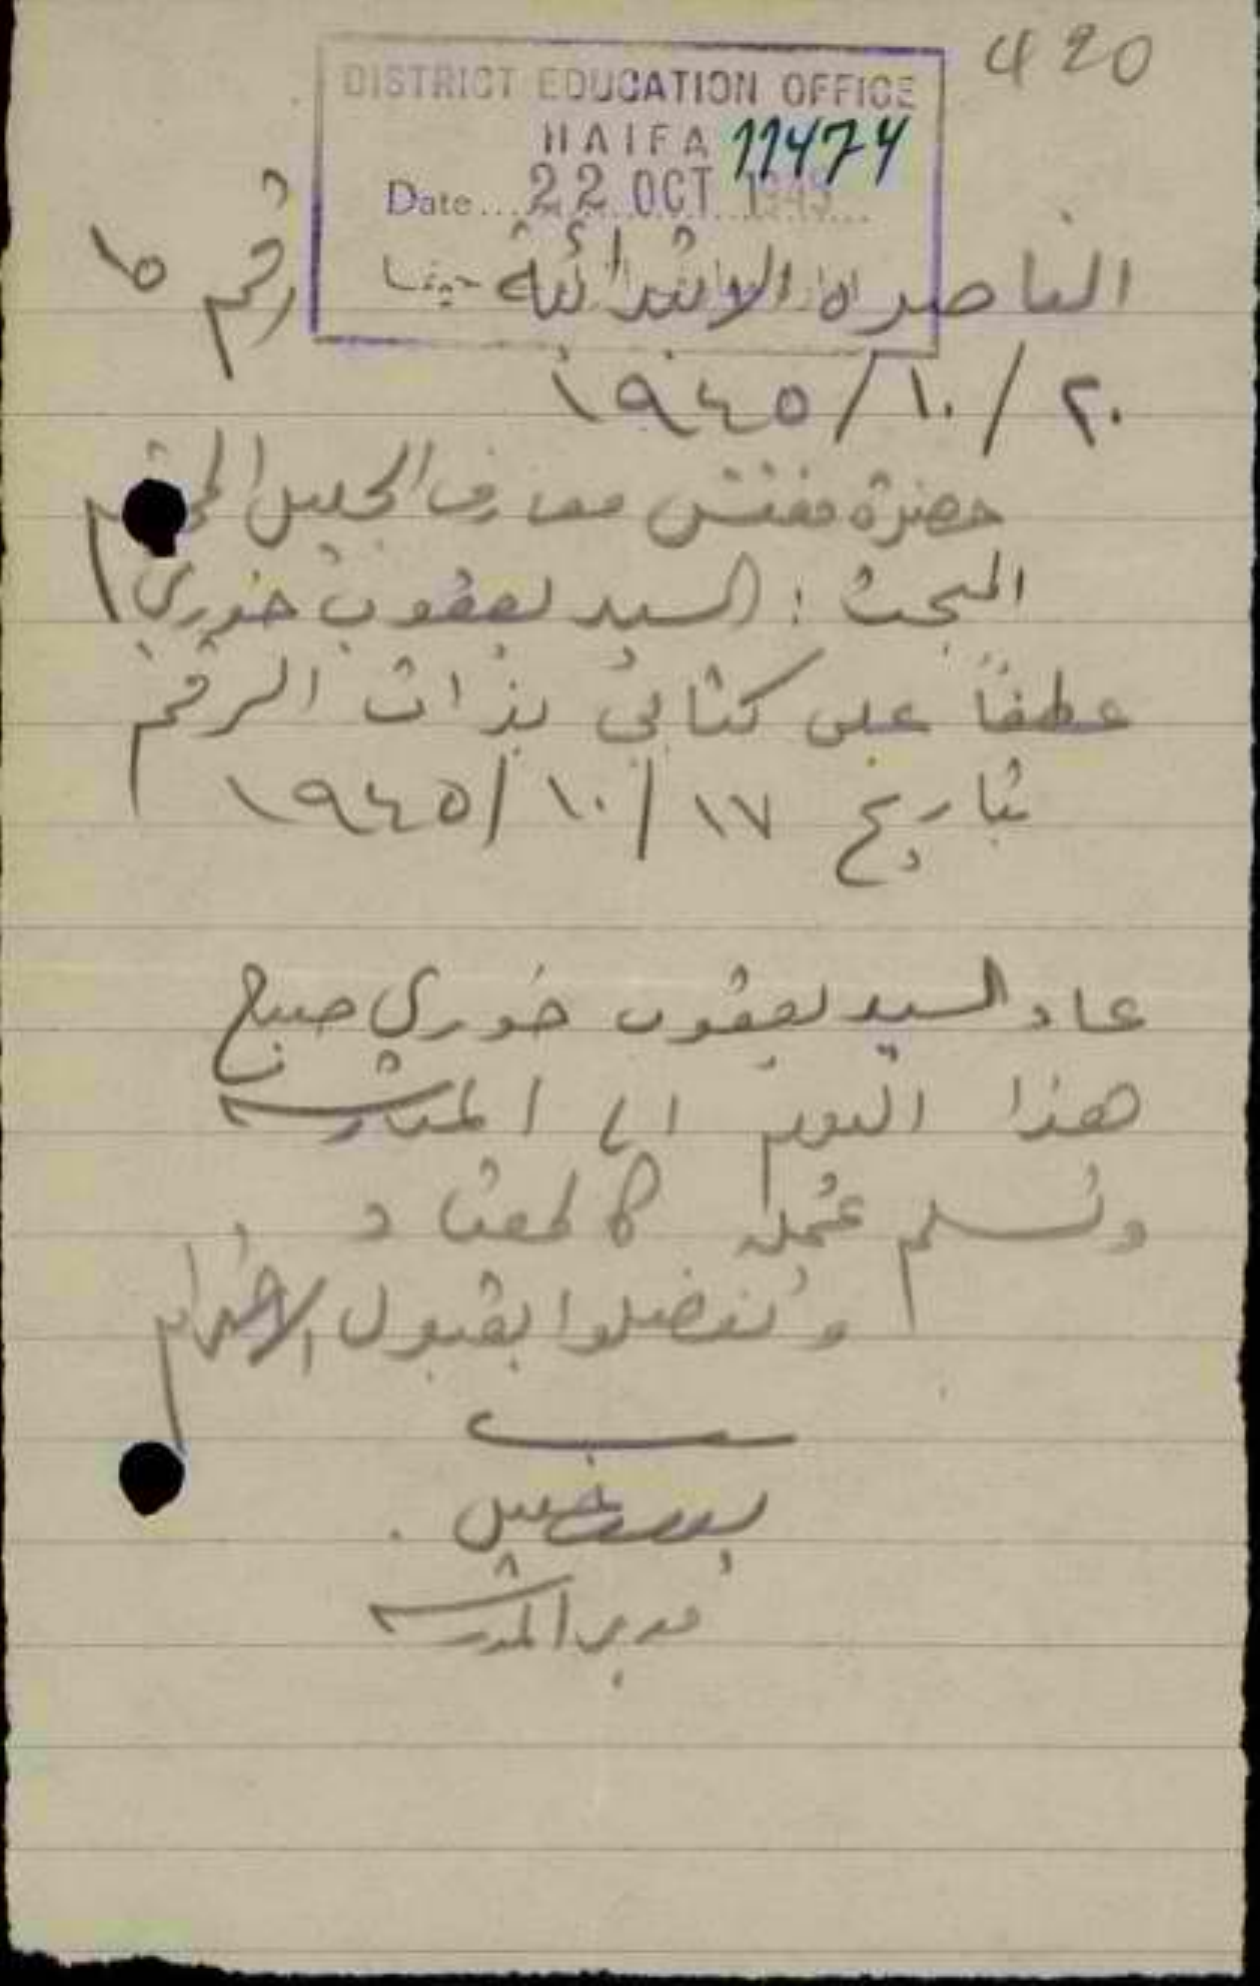 420
DISTRICT EDUCATION OFFICE
HAIFA 11474
Date... 22 OCT 1945
الناصره الابتدائية رقم ١٥
٢٠/١٠/١٩٤٥
حضرة مفتش معارف الجليل المحترم
المبحث : السيد يعقوب خوري
عطفاً على كتابي بذات الرقم
بتاريخ ١٧/١٠/١٩٤٥
عاد السيد يعقوب خوري صباح
هذا اليوم الى المدرسه
وتسلم عمله كالمعتاد
وتفضلوا بقبول الاحترام
مدير المدرسه